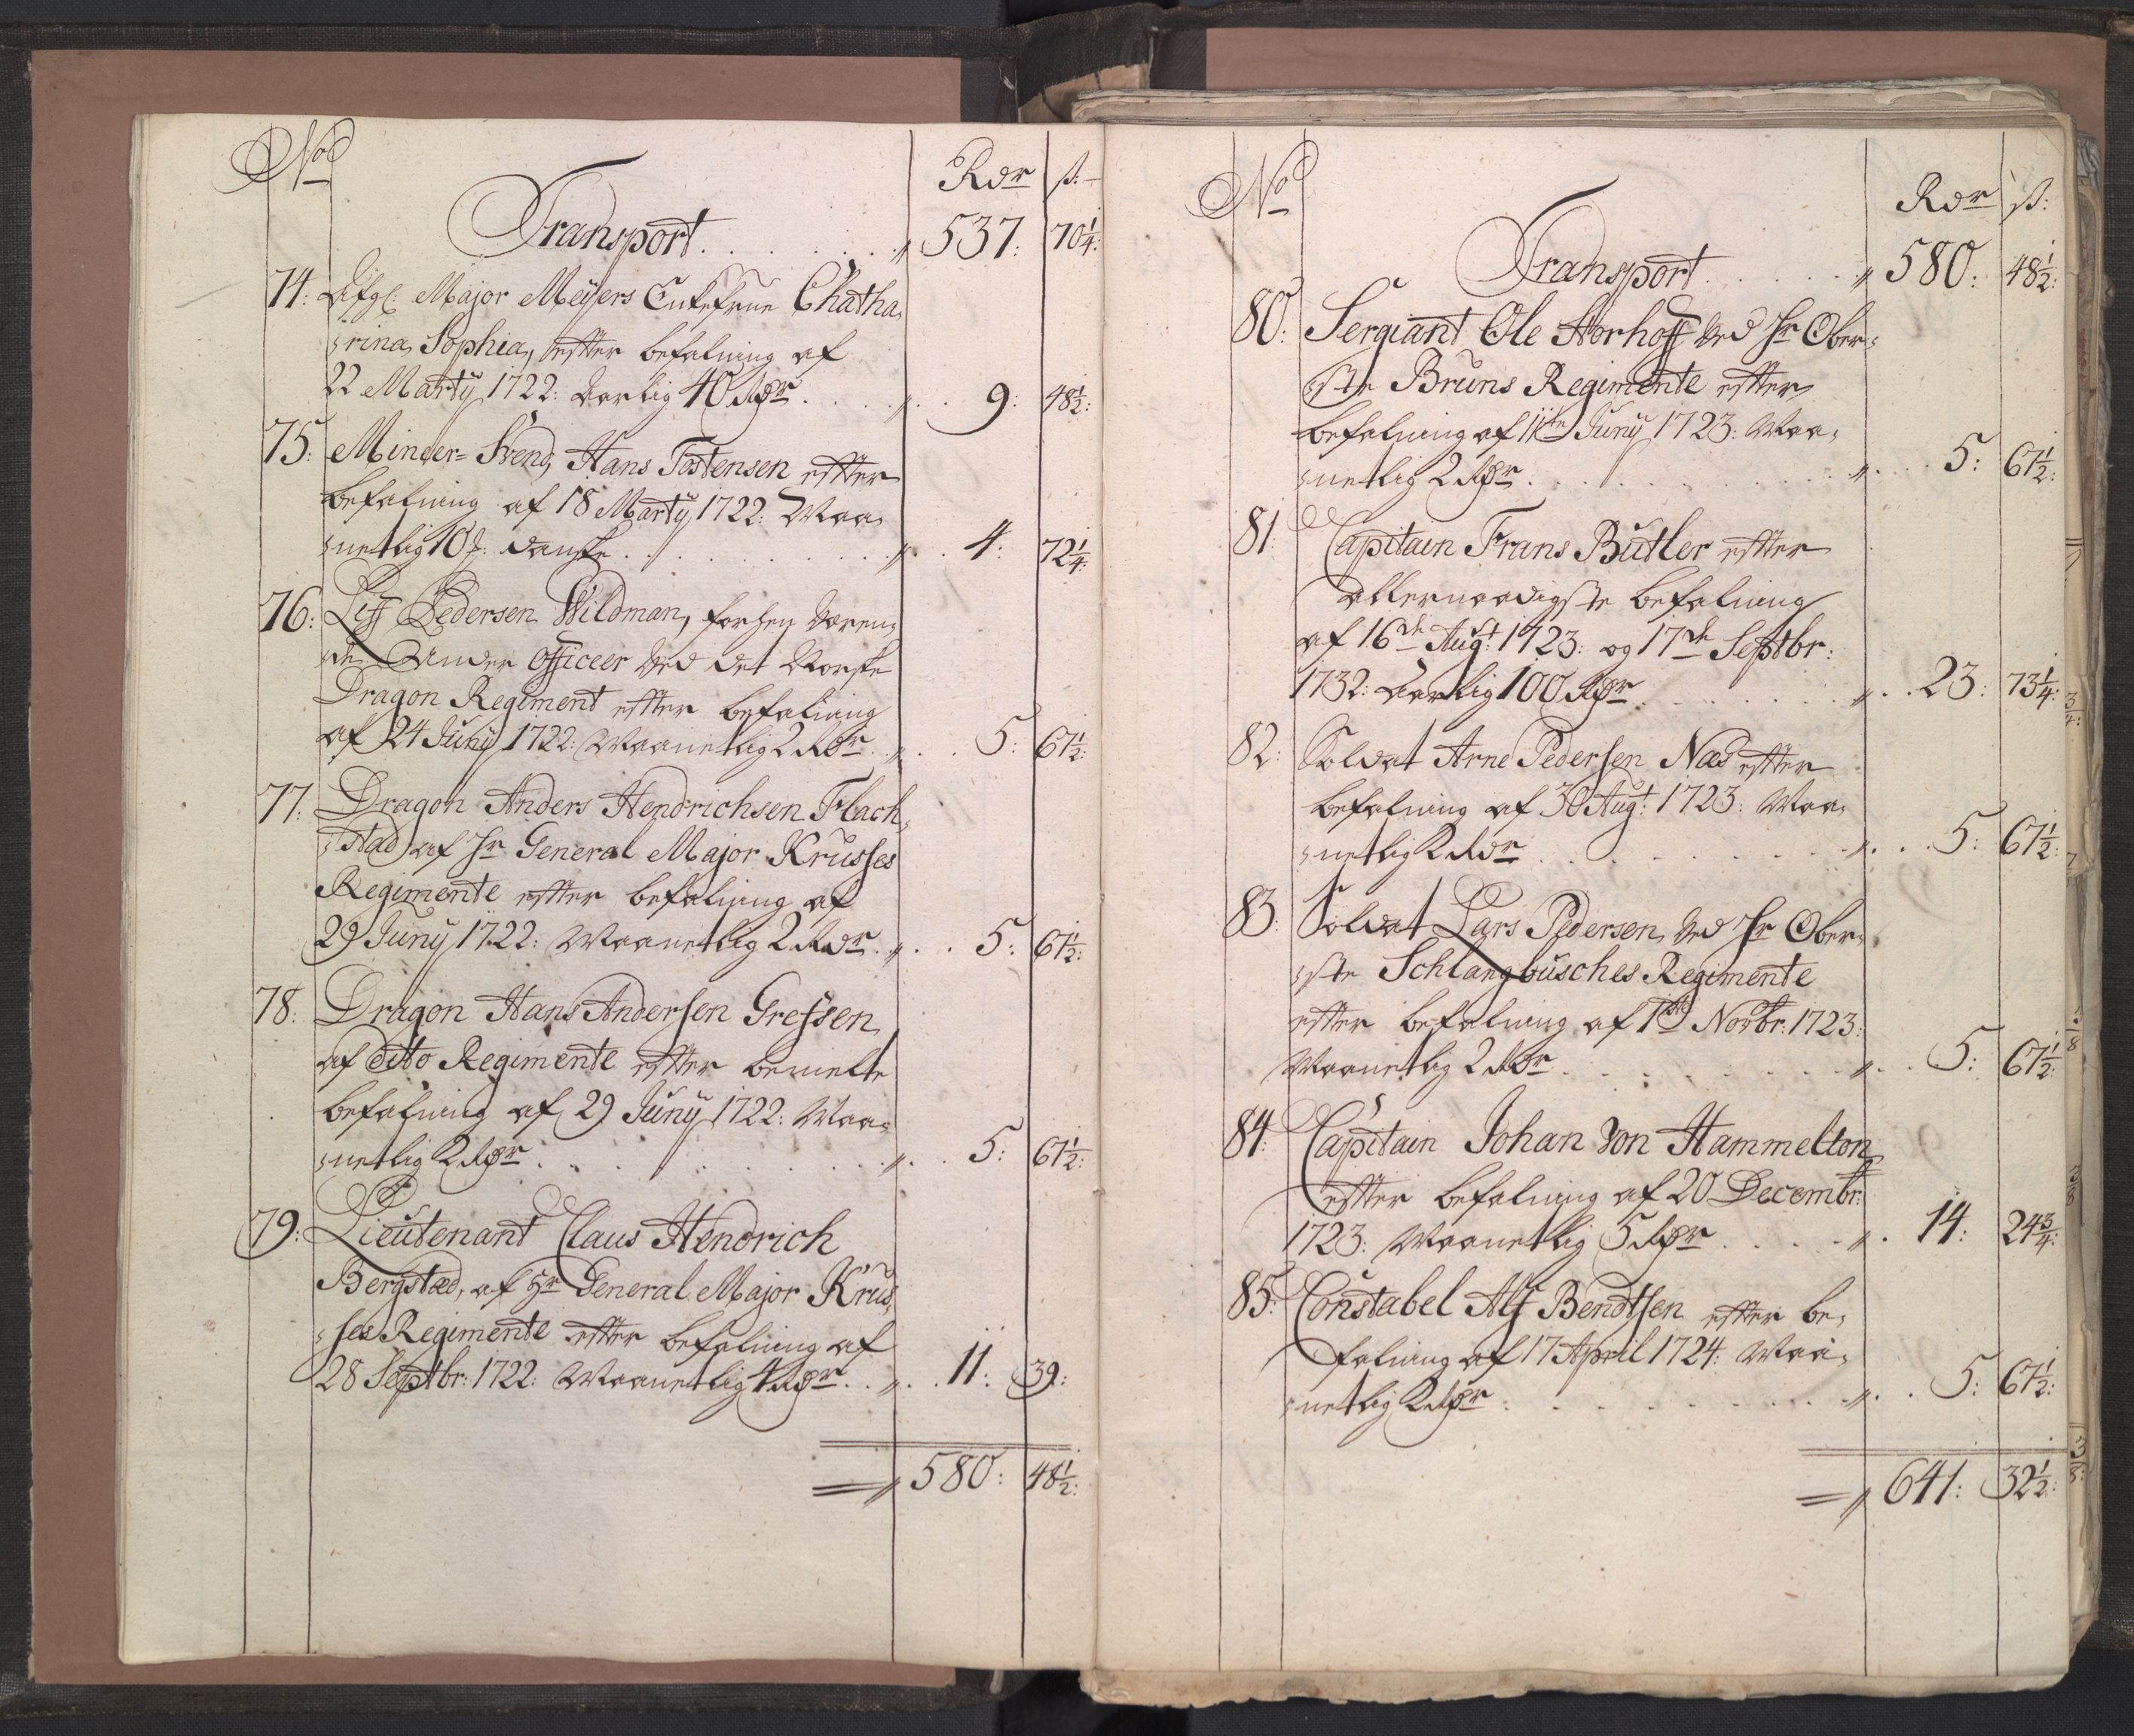 No
Rdr ß:
Transport . . . . . . . „ 537: 70¼:
74: Afgl: Major Meÿers Enkefrue Chatha⸗
⸗rina Sophia, effter befalning af
22 Martÿ 1722: Aarlig 40 Rdr . . . . „ . . 9: 48½:
75: Minder⸗Svend Hans Tostensen effter
befalning af 18 Martÿ 1722: Maa⸗
⸗netlig 10 ß: danske . . . . . . . „ . . 4: 72¼:
76: Leff Pedersen Wildman, forhen Varen⸗
⸗de Under Officeer Ved det Norske
Dragon Regiment effter befalning
af 24 Junÿ 1722: Maanetlig 2 Rdr . „ . . 5: 67½:
77: Dragon Anders Hendrichsen Flach⸗
⸗stad af Hr General Major Krusses
Regimente effter befalning af
29 Junÿ 1722: Maanetlig 2 Rdr . „ . . 5: 67½:
78: Dragon Hans Andersen Gressen
af dito Regimente effter bemelte
befalning af 29 Junÿ 1722: Maa⸗
⸗netlig 2 Rdr . . . . . . . „ . . 5: 67½:
79: Lieutenant Claus Hendrich
Bergstæd, af Hr General Major Krus⸗
⸗ses Regimente effter befalning af
28 Septbr: 1722: Maanetlig 4 Rdr . . „ . . 11: 39:
= „ 580: 48½:
No
Rdr ß:
Transport . . . . . „ 580: 48½:
80: Sergiant Ole Storhoff Ved Hr Ober⸗
⸗ste Bruns Regimente effter
befalning af 11te Junÿ 1723: Maa⸗
⸗netlig 2 Rdr . . . . . . . „ . . 5: 67½:
81: Capitain Frans Butler effter
allernaadigste befalning
af 16de Augt: 1723: og 17de Septbr:
1732: Aarlig 100 Rdr . . . . . „ . . 23: 73¼:
82: Soldat Arne Pedersen Næs effter
befalning af 30 Augt: 1723: Maa⸗
⸗netlig 2 Rdr . . . . . . . „ . . 5: 67½:
83: Soldat Lars Pedersen, Ved Hr Ober⸗
⸗ste Schlangbusches Regimente
effter befalning af 1ste Novbr: 1723:
Maanetlig 2 Rdr . . . . . . . „ . . 5: 67½:
84: Capitain Johan Von Hammelton
effter befalning af 20 Decembr:
1723: Maanetlig 5 Rdr . . . . „ . 14: 24¾:
85: Constabel Alf Bendtsen effter be⸗
falning af 17 April 1724: Maa⸗
⸗netlig 2 Rdr . . . . . . . „ . . 5: 67½:
= „ 641: 32½: